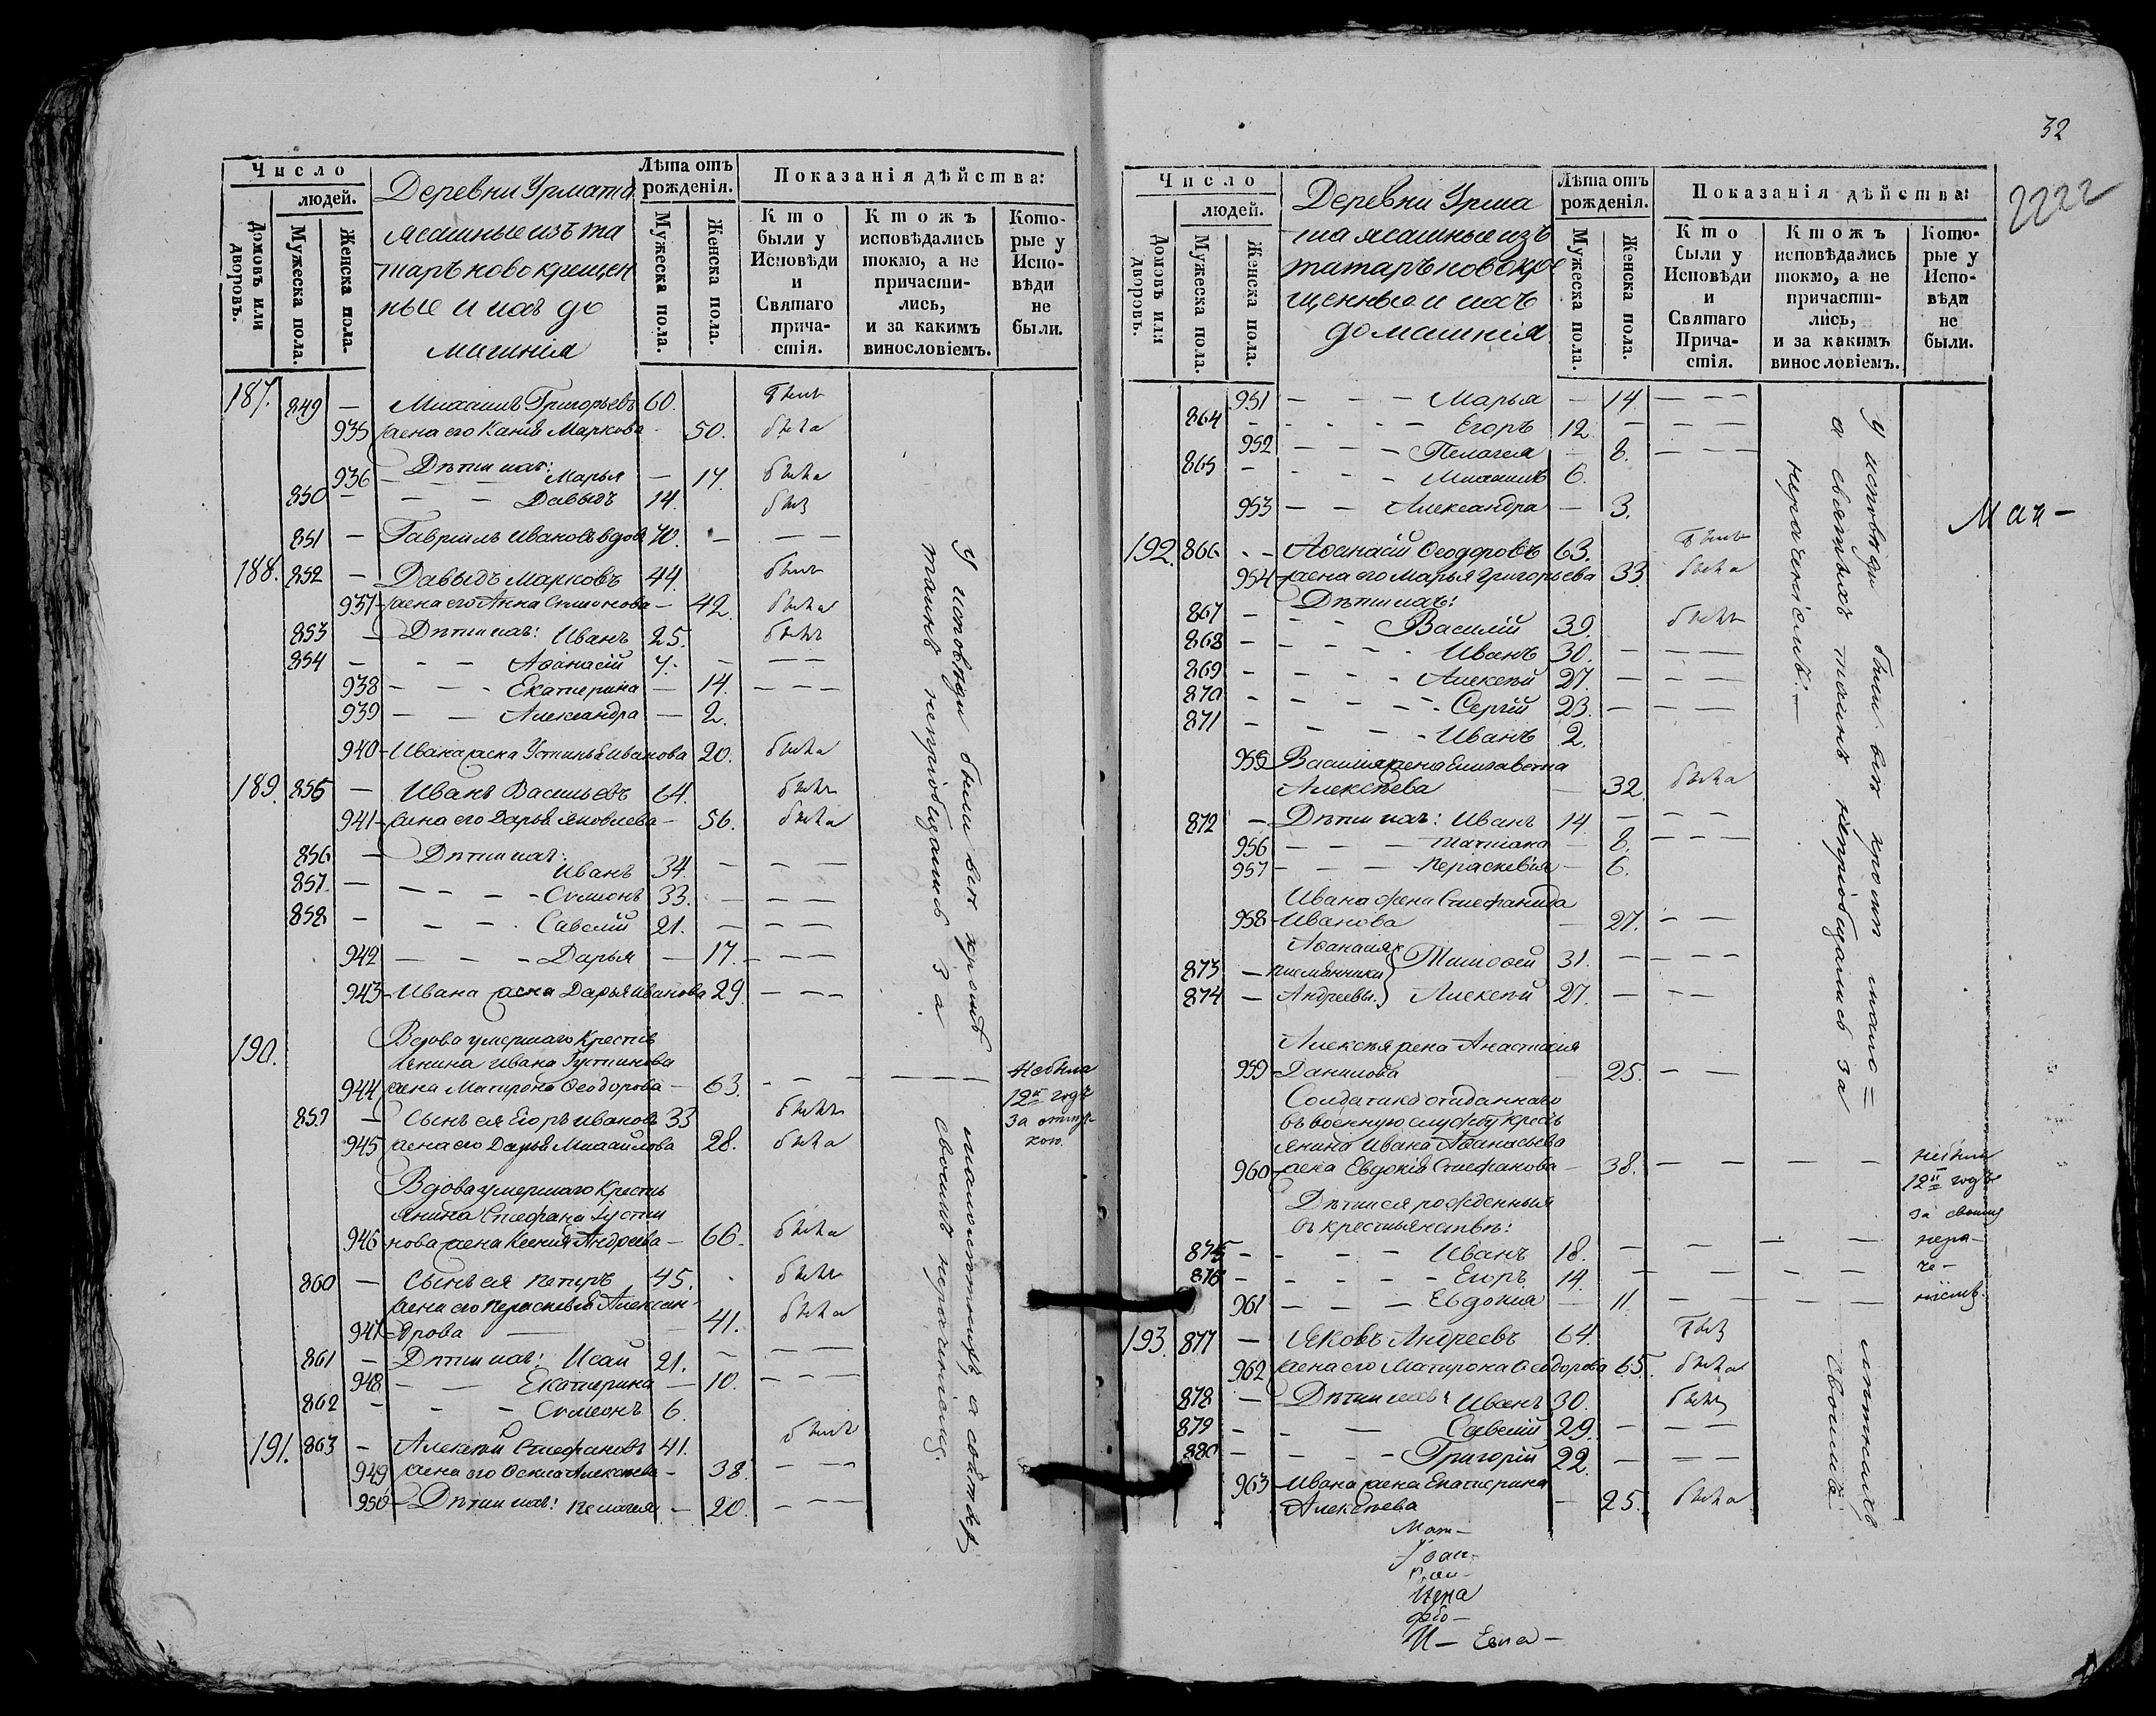 Число
людей.
Домовъ или дворовъ.
Мужеска пола.
Женска пола.
Деревни Урмата
ясашные изъ та
таръ новокрещен
ные и ихъ до
машнія
Лѣта отъ рожденія.
Мужеска пола.
Женска пола.
Показанія дѣйства:
Кто были у Исповѣди и Святаго причастія.
Ктожъ исповѣдались токмо, а не причастились, и за какимъ винословіемъ.
Которые у Исповѣди не были.
187. 849 — Михаилъ Григорьевъ 60. былъ
935 жена его Маркова 50. была
Дѣти ихъ:
936 Марья — 17. была
850 — — — Давыдъ 14. былъ
851 — Гавріилъ Ивановъ вдовъ 70. — — —
188. 852 — Давыдъ Марковъ 44. былъ
937 жена его Анна Симонова — 42. была
853 — Дѣти ихъ: Иванъ 25. былъ
854 — — — Аѳанасій 7. — — —
938 — — — Екатерина — 14. — — —
939 — — Александра — 2.
940 Ивана жена Устинья Иванова 20. была
189. 855 — Иванъ Васильевъ 64. былъ
941 жена его Дарья Яковлева — 56. была
Дѣти ихъ:
856 — Иванъ 34. — — —
857 — — — — Симеонъ 33. — — —
858 — — — Савелій 21. — — —
942 — — — Дарья — 17. — — —
943 Ивана жена Дарья Иванова 29. — — —
190. Вдова умершаго Крестья
янина Ивана Густинова
944 жена Матрона Ѳеодорова — 63. — — — — — — не была
12й годъ
за отлуч
кою.
859 — Сынъ ея Егоръ Ивановъ 33 былъ
945 жена его Дарья Михайлова 28. была
Вдова умершаго Кресть
янина Стефана Густи
946 нова жена Ксенія Андреева — 66. была
860 — Сынъ ея Петръ 45. былъ
жена его Параскевія Алексан-
947 дрова — 41. была
861 — Дѣти ихъ: Исай 21. — — —
948 — — Екатерина — 10. — — —
862 — — — Симеонъ 6.
191. 863 — Алексѣй Стефановъ 41. былъ
949 жена его Алексѣева — 38. — — —
950 — Дѣти ихъ: Пелагея — 20. — — —
У исповѣди были всѣ кромѣ малолѣтнихъ, а святыхъ
таинъ непріобщались за своимъ нераченіемъ.
32
2222
Число
людей.
Домовъ или дворовъ.
Мужеска пола.
Женска пола.
Деревни Урма
та ясашные изъ
татаръ новокре
щенные и ихъ
домашнія
Лѣта отъ рожденія.
Мужеска пола.
Женска пола.
Показанія дѣйства:
Кто были у Исповѣди и Святаго Причастія.
Ктожъ исповѣдались токмо, а не причастились, и за какимъ винословіемъ.
Которые у Исповѣди не были.
951 — — — Марья — 14. — — —
864 — — — — Егоръ 12. — — —
952 — — — Пелагея — 8. — — —
865 — — — — Михаилъ 6.
953 — — Александра — 3.
Мат-
192. 866 — — Аѳанасій Ѳеодоровъ 63. былъ
954 жена его Марья Григорьева 33. была
Дѣти ихъ:
867 — — — Василій 39. былъ
868 — — — — Иванъ 30. — — —
869 — — — — Алексѣй 27. — — —
870 — — — — Сергій 23. — — —
871 — — — — Иванъ 2.
955 Василія жена Елизавета
Алексѣева — 32. была
872 — Дѣти ихъ: Иванъ 14. — — —
956 — — — Татіана — 8. — — —
957 — — — Параскевія — 6.
Ивана жена Стефанида
958 Иванова — 27. — —
Аѳанасія
873 — племянники Тимоѳей 31. — — —
874 — Андреевы. Алексѣй 27. — — —
Алексѣя жена Анастасія
959 Данилова — 25. — —
Солдатика отданнаго
въ военную службу кресть
янина Ивана Аѳанасьева
960 жена Евдокія Стефанова — 38. — — — — не была
12й годъ
за своимъ
нера-
че-
ніемъ.
Дѣти ея рожденныя
въ крестьянствѣ:
875 — — — — Иванъ 18. — — — —
876 — — — — Егоръ 14. — — — —
961 — — — Евдокія — 11. — — — —
193. 877 — Яковъ Андреевъ 64. былъ
962 жена его Матрона Ѳеодорова 65. была
878 — Дѣти ихъ: Иванъ 30. былъ
879 — — — Савелій 29. — — —
880 — — — — Григорій 22. — — —
963 Ивана жена Екатерина
Алексѣева — 25. была
У исповѣди были всѣ кромѣ мало= лѣтнихъ
а святыхъ таинъ непріобщались за своимъ
нераченіемъ. —